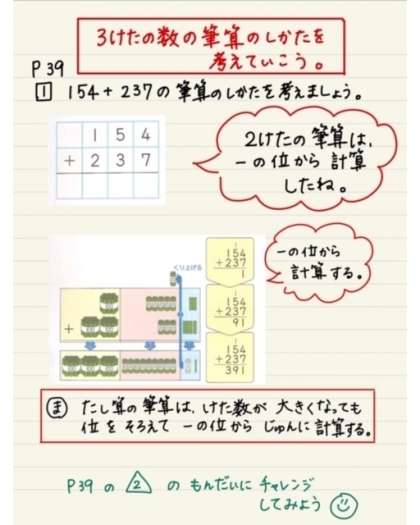 3けたの数の筆算のしかたを
考えていこう。
P39
1 154+237の筆算のしかたを考えましょう。
1 5 4
+ 2 3 7
2けたの筆算は、
一の位から計算
したね。
くり上げる
1
154
+237
1
1
154
+237
91
1
154
+237
391
+
一の位から
計算する。
ま たし算の筆算は、けた数が大きくなっても
位をそろえて一の位からじゅんに計算する。
P39の 2 のもんだいにチャレンジ
してみよう